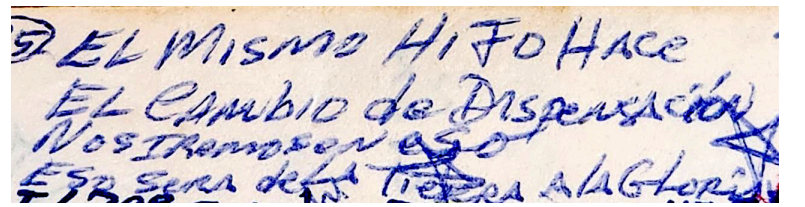 ⑤ EL MISMO HIJO HACE
EL CAMBIO de DISPENSACIÓN
NOS IREMOS EN ESO
ESO SERA de LA TIERRA A LA GLORIA